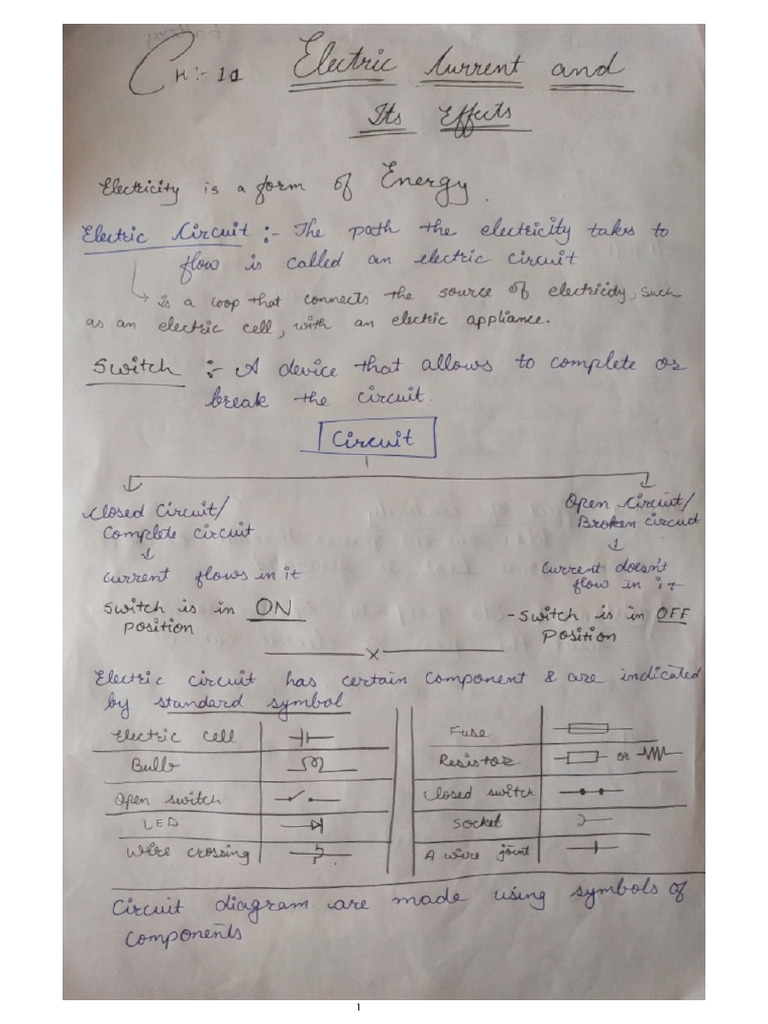 CH:- 10 Electric Current and
Its Effects
Electricity is a form of Energy.
Electric Circuit :- The path the electricity takes to
flow is called an electric circuit
Is a loop that connects the source of electricity, such
as an electric cell, with an electric appliance.
Switch :- A device that allows to complete or
break the circuit.
Circuit
Closed Circuit/
Complete circuit
current flows in it
Switch is in ON
position
Open Circuit/
Broken circuit
Current doesn't
flow in it
- Switch is in OFF
position
x
Electric circuit has certain component & are indicated
by standard symbol
Electric cell
Bulb
Open switch
LED
Wire crossing
Fuse
Resistor or
Closed switch
Socket
A wire joint
Circuit diagram are made using symbols of
components
1